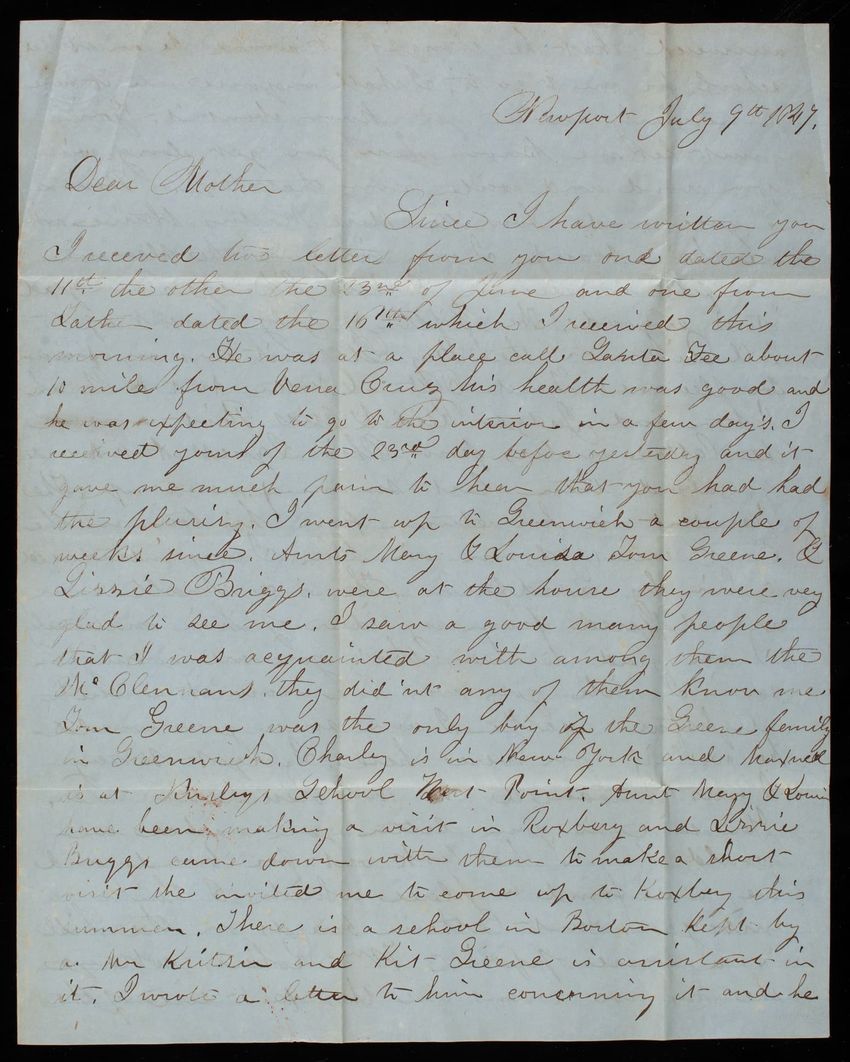 Newport July 9th 1847.
Dear Mother
Since I have written you
I receved two letter from you one dated the
11th the other the 23rd of June and one from
Father dated the 16th which I received this
morning. He was at a place call Santa Fee about
10 mile from Vera Cruz his health was good and
he was expecting to go to the interior in a few day's. I
received yours of the 23rd day befoe yesterday and it
gave me much pain to hear that you had had
the plurisy. I went up to Greenwich a couple of
weeks since. Aunts Mary & Louisa Tom Greene. &
Lizzie Briggs. were at the house they were vey
glad to see me. I saw a good many people
that I was acquainted with among them the
Mc Clennans. they did'nt any of them know me
Tom Greene was the only boy of the Greene family
in Greenwich. Charley is in New York and
is at Kinsleys School West Point. Aunt Mary & Louisa
have been making a visit in Roxbury and Lizzie
Briggs came down with them to make a short
visit she invited me to come up to Roxbey this
summer. There is a school in Boston kept by
a Mr and Kit Greene is assistant in
it. I wrote a letter to him concerning it and he